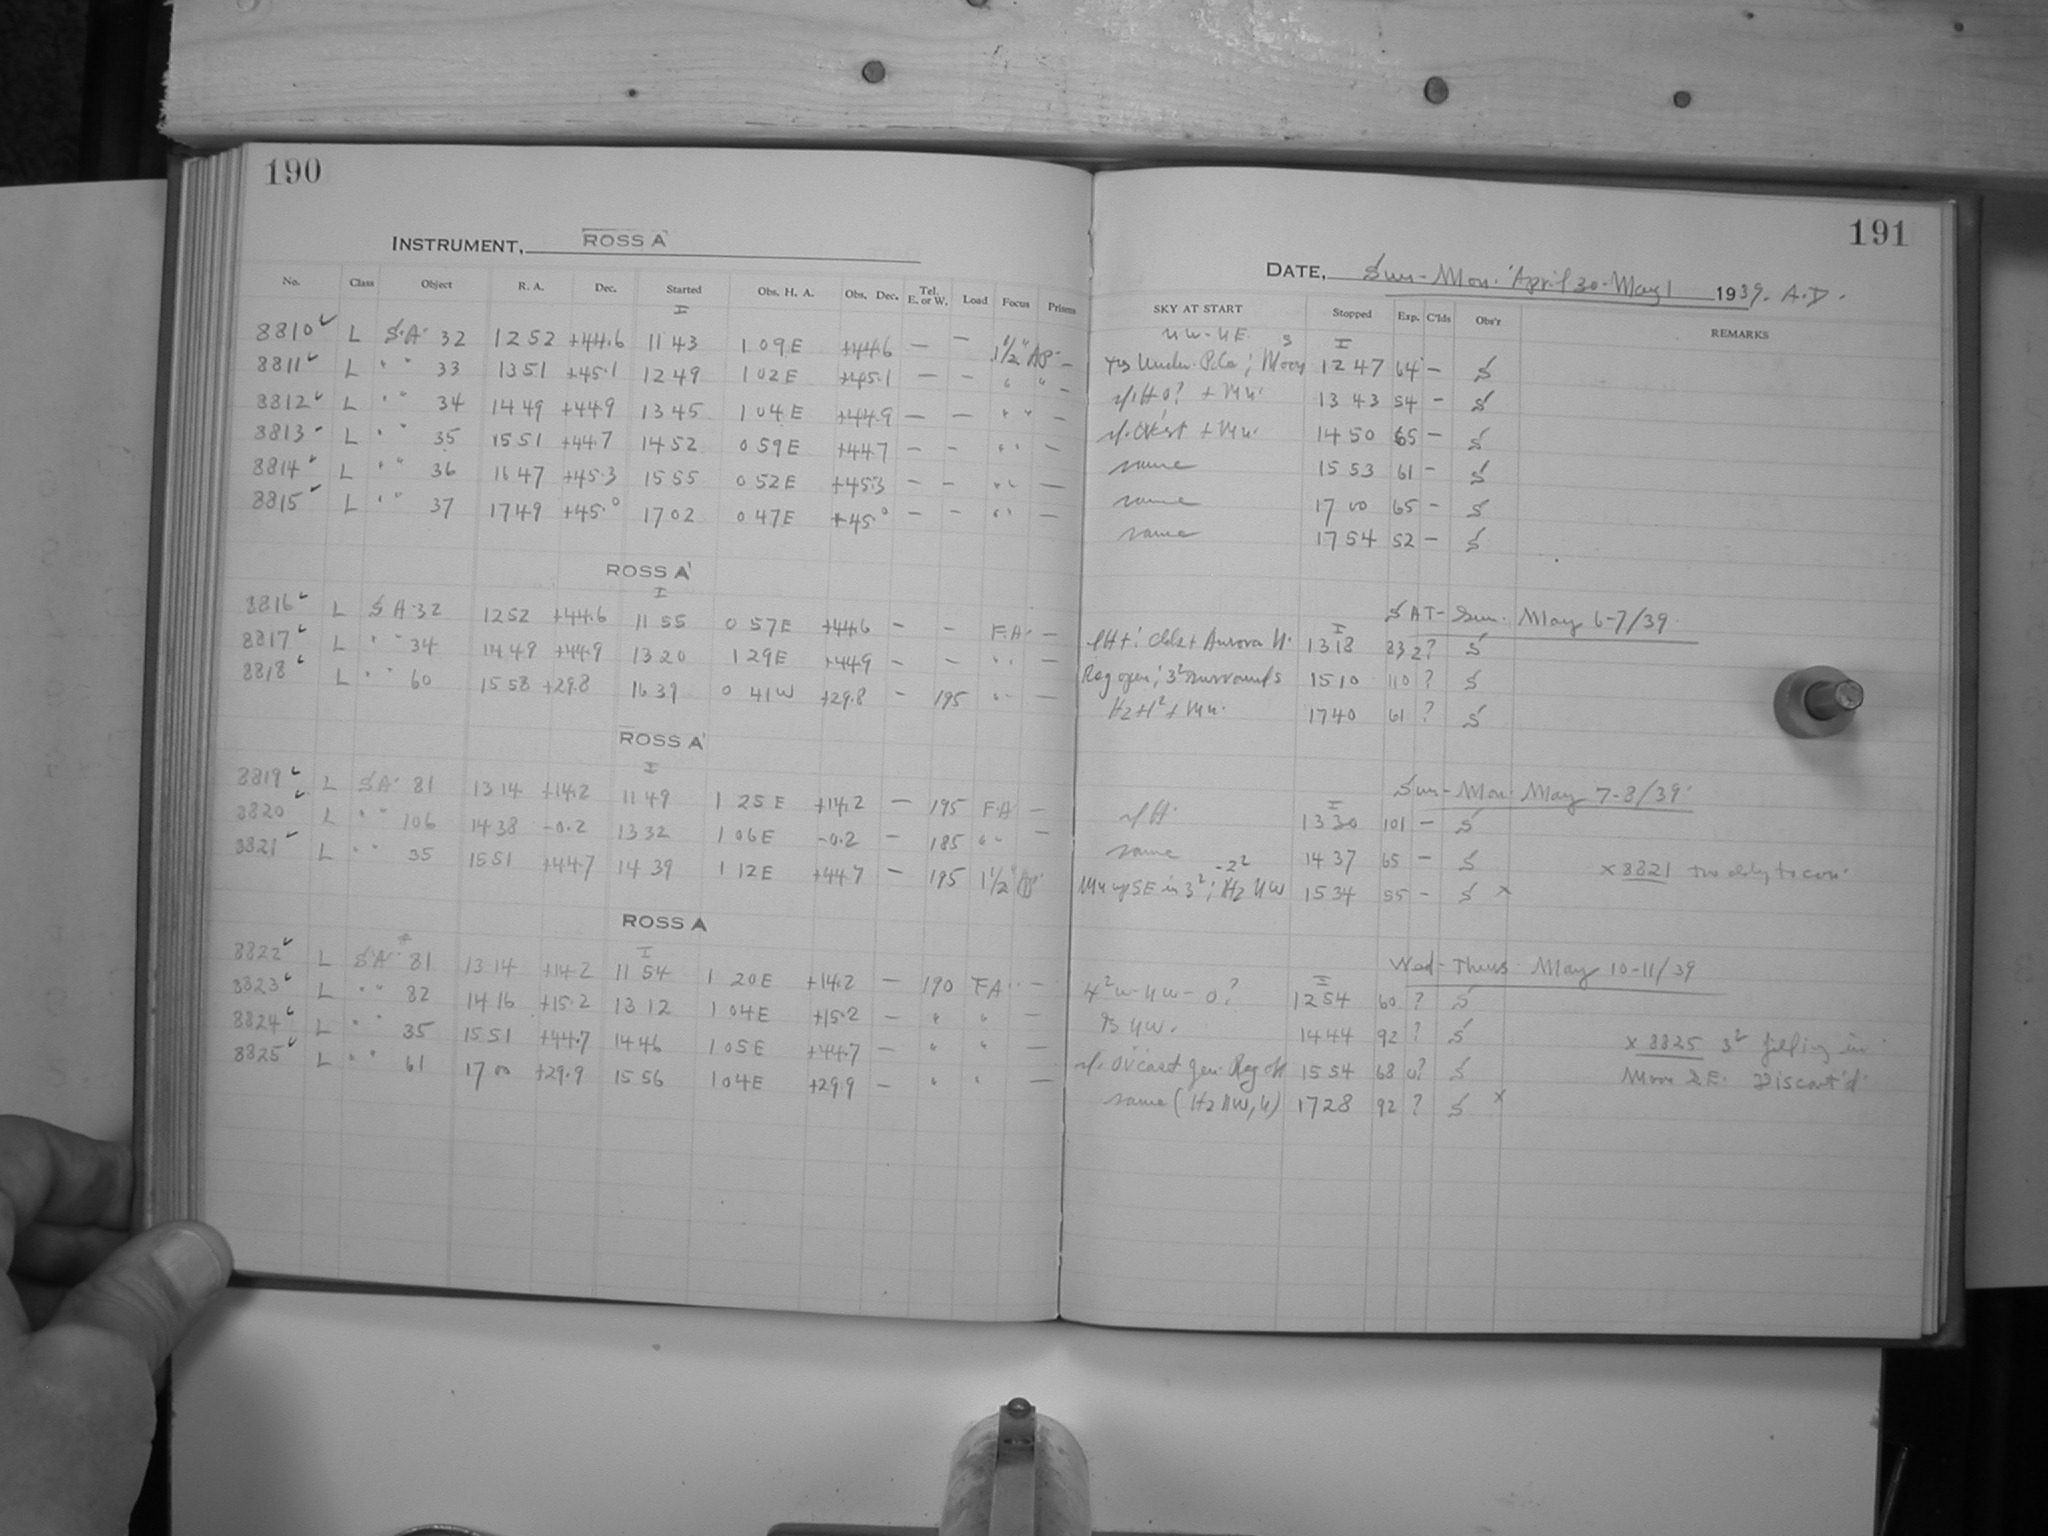 190
INSTRUMENT, ROSS A
No. Class Object R. A. Dec. Started Obs. H. A. Obs. Dec. Tel. E. or W. Load Focus Prisms
I
8810 L S.A. 32 12 52 +44.6 11 43 1 09 E +44.6 — — 1 1/2" AP —
8811 L " " 33 13 51 +45.1 12 49 1 02 E +45.1 — — " " —
8812 L " " 34 14 49 +44.9 13 45 1 04 E +44.9 — — " " —
8813 L " " 35 15 51 +44.7 14 52 0 59 E +44.7 — — " " —
8814 L " " 36 16 47 +45.3 15 55 0 52 E +45.3 — — " " —
8815 L " " 37 17 49 +45.0 17 02 0 47 E +45.0 — — " " —
ROSS A
I
8816 L S A 32 12 52 +44.6 11 55 0 57 E +44.6 — — F.A. —
8817 L " " 34 14 49 +44.9 13 20 1 29 E +44.9 — — " " —
8818 L " " 60 15 58 +29.8 16 39 0 41 W +29.8 — 195 " " —
ROSS A
I
8819 L S A 81 13 14 +14.2 11 49 1 25 E +14.2 — 195 F.A. —
8820 L " " 106 14 38 -0.2 13 32 1 06 E -0.2 — 185 " " —
8821 L " " 35 15 51 +44.7 14 39 1 12 E +44.7 — 195 1 1/2"
ROSS A
I
8822 L S A 81 13 14 +14.2 11 54 1 20 E +14.2 — 190 F A —
8823 L " " 82 14 16 +15.2 13 12 1 04 E +15.2 — " " —
8824 L " " 35 15 51 +44.7 14 46 1 05 E +44.7 — " " —
8825 L " " 61 17 00 +29.9 15 56 1 04 E +29.9 — " " —
191
DATE, Sun-Mon. April 30-May 1 1939. A.D.
SKY AT START Stopped Exp. C'lds Obs'r REMARKS
I
Moon 12 47 64 — S
13 43 54 — S
14 50 65 — S
same 15 53 61 — S
same 17 00 65 — S
same 17 54 52 — S
SAT-Sun. May 6-7/39
I
Aurora N. 13 18 83 2? S
surrounds 15 10 110 ? S
17 40 61 ? S
Sun-Mon. May 7-8/39
I
13 30 101 — S
same 14 37 65 — S
15 34 55 — S x
x 8821
Wed-Thurs. May 10-11/39
I
12 54 60 ? S
14 44 92 ? S
15 54 68 0? S
same 17 28 92 ? S x
x 8825 3² filling in
Moon S.E. Discont'd